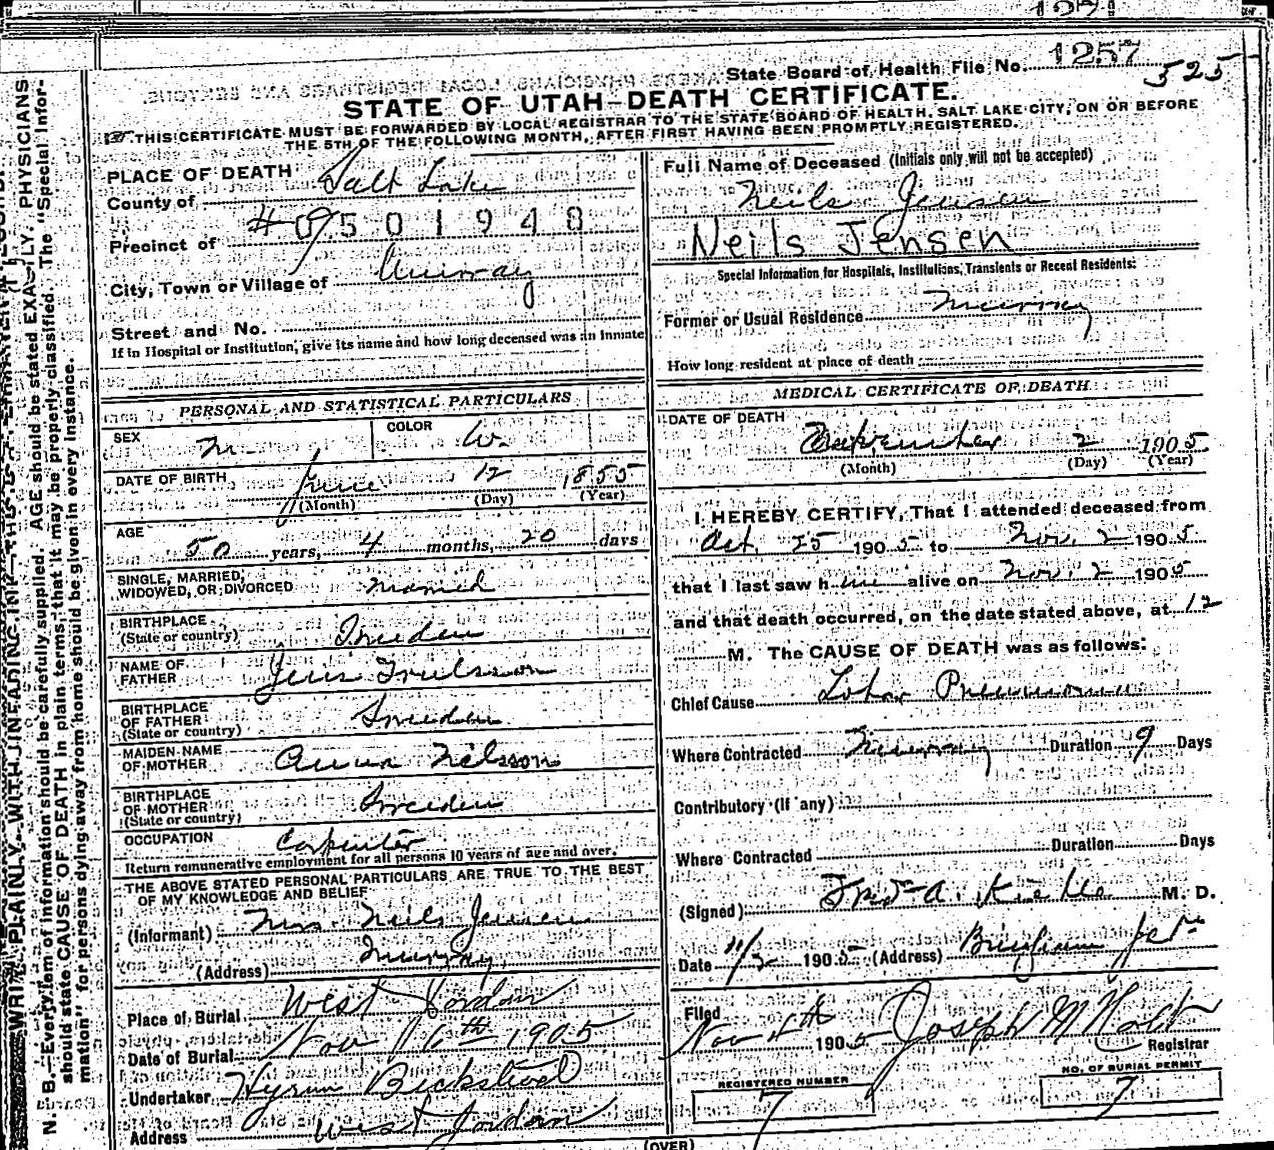 State Board of Health File No. 1257
525
STATE OF UTAH—DEATH CERTIFICATE.
THIS CERTIFICATE MUST BE FORWARDED BY LOCAL REGISTRAR TO THE STATE BOARD OF HEALTH, SALT LAKE CITY, ON OR BEFORE
THE 5TH OF THE FOLLOWING MONTH, AFTER FIRST HAVING BEEN PROMPTLY REGISTERED.
PLACE OF DEATH
County of Salt Lake
0501948
Precinct of #9
City, Town or Village of Murray
Street and No.
If in Hospital or Institution, give its name and how long deceased was an Inmate
PERSONAL AND STATISTICAL PARTICULARS
SEX M. COLOR W.
DATE OF BIRTH June 12 1855
(Month) (Day) (Year)
AGE
50 years, 4 months, 20 days
SINGLE, MARRIED,
WIDOWED, OR DIVORCED Married
BIRTHPLACE
(State or country) Sweden
NAME OF
FATHER Jens Truelsson
BIRTHPLACE
OF FATHER
(State or country) Sweden
MAIDEN NAME
OF MOTHER Anna Nilsson
BIRTHPLACE
OF MOTHER
(State or country) Sweden
OCCUPATION Carpenter
Return remunerative employment for all persons 10 years of age and over.
THE ABOVE STATED PERSONAL PARTICULARS ARE TRUE TO THE BEST
OF MY KNOWLEDGE AND BELIEF
(Informant) Mrs. Neils Jensen
(Address) Murray
Place of Burial West Jordan
Date of Burial Nov 6th 1905
Undertaker Hyrum Beckstead
Address West Jordan
Full Name of Deceased (Initials only will not be accepted)
Neils Jensen
Neils Jensen
Special Information for Hospitals, Institutions, Transients or Recent Residents:
Former or Usual Residence Murray
How long resident at place of death
MEDICAL CERTIFICATE OF DEATH
DATE OF DEATH
November 2 1905
(Month) (Day) (Year)
I HEREBY CERTIFY, That I attended deceased from
Oct. 25 1905 to Nov. 2 1905
that I last saw him alive on Nov. 2 1905
and that death occurred, on the date stated above, at 12
M. The CAUSE OF DEATH was as follows:
Chief Cause Lobar Pneumonia
Where Contracted Murray Duration 9 Days
Contributory (If any)
Where Contracted Duration Days
(Signed) M. D.
Date 11/2 1905 (Address) Bingham Jct.
Filed
Nov 4th 1905 Joseph M Holt
Registrar
REGISTERED NUMBER
7
NO. OF BURIAL PERMIT
7
(OVER)
N. B.—Every item of information should be carefully supplied. AGE should be stated EXACTLY. PHYSICIANS
should state CAUSE OF DEATH in plain terms, that it may be properly classified. The "Special Infor-
mation" for persons dying away from home should be given in every instance.